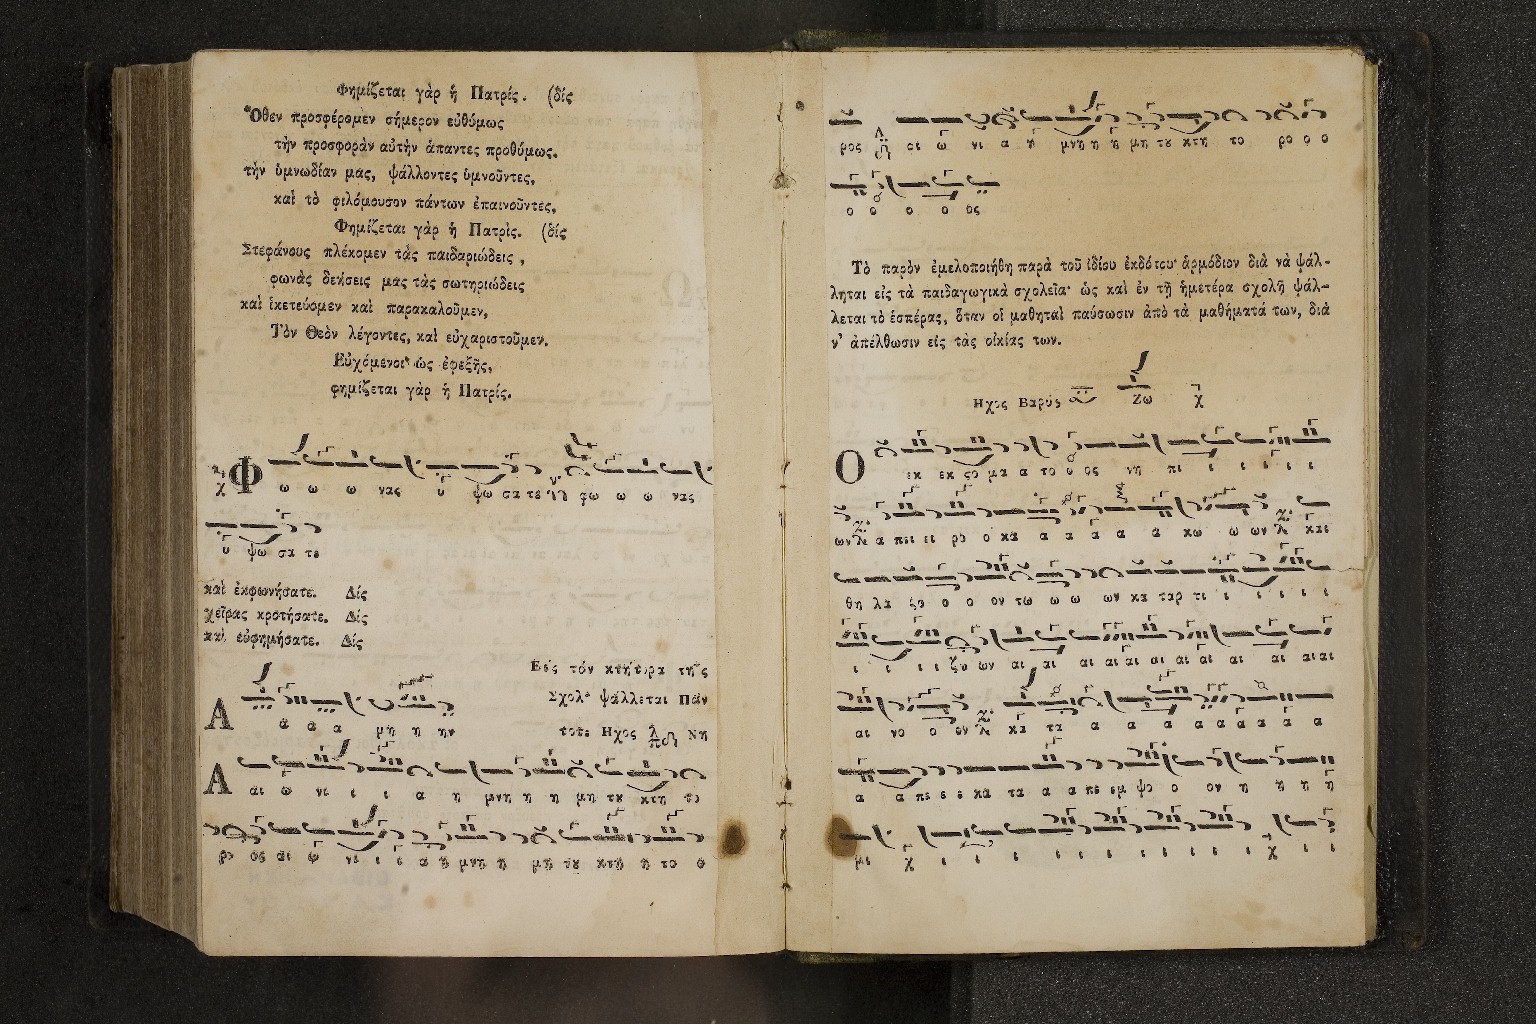 Φημίζεται γὰρ ἡ Πατρίς. (δίς
Ὅθεν προσφέρομεν σήμερον εὐθύμως
τὴν προσφορὰν αὐτὴν ἅπαντες προθύμως.
τὴν ὑμνωδίαν μας, ψάλλοντες ὑμνοῦντες,
καὶ τὸ φιλόμουσον πάντων ἐπαινοῦντες,
Φημίζεται γὰρ ἡ Πατρίς. (δίς
Στεφάνους πλέκομεν τὰς παιδαριώδεις,
φωνὰς δεήσεις μας τὰς σωτηριώδεις
καὶ ἱκετεύομεν καὶ παρακαλοῦμεν,
Τὸν Θεὸν λέγοντες, καὶ εὐχαριστοῦμεν.
Εὐχόμενοι ὡς ἐφεξῆς,
φημίζεται γὰρ ἡ Πατρίς.
Φ ω ω ω νας ὑ ψω σα τε φω ω ω νας
ὑ ψω σα τε
καὶ ἐκφωνήσατε. Δίς
χεῖρας κροτήσατε. Δίς
καὶ εὐφημήσατε. Δίς
Εἰς τόν κτήτορα τῆς
Σχολ ψάλλεται Πάν
τοτε Ηχος Νη
Α α α α μη η ην
Α αι ω νι ι ι α η μνη η η μη του κτη το
ρο ος αι ω νι ι ι α η μνη η μη του κτη η το ο
ρος αι ω νι α η μνη η η μη του κτη το ρο ο ο
ο ο ο ο ος
Τὸ παρὸν ἐμελοποιήθη παρὰ τοῦ ἰδίου ἐκδότου· ἁρμόδιον διὰ νὰ ψάλ-
ληται εἰς τὰ παιδαγωγικὰ σχολεῖα· ὡς καὶ ἐν τῇ ἡμετέρα σχολῇ ψάλ-
λεται τὸ ἑσπέρας, ὅταν οἱ μαθηταὶ παύσωσιν ἀπὸ τὰ μαθήματά των, διὰ
ν' ἀπέλθωσιν εἰς τὰς οἰκίας των.
Ηχος Βαρύς Ζω
Ο εκ εκ ζο μα α το ο ος νη πι ι ι ι ι ι
ων α πει ει ρο ο κα α α α α α κω ω ων και
θη λα ζο ο ο ον τω ω ω ων κα ταρ τι ι ι ι ι ι
ι ι ι ι ζο ων αι αι αι αι αι αι αι αι αι αι αι αι
αι νο ο ον κα τα α α α α α α α α α
α α πε ε ε κα τα α α πε εμ ψο ο ον η η η η
μι ι ι ι ι ι ι ι ι ι ι ι ι ι